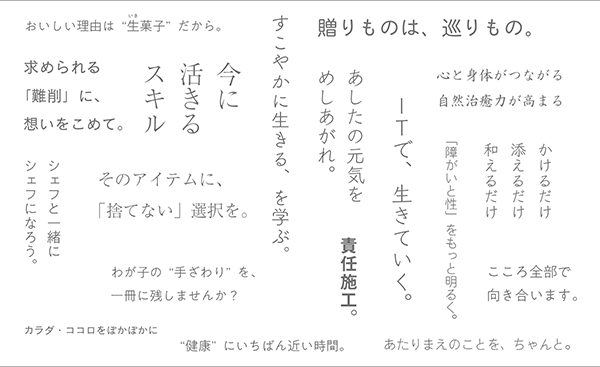 おいしい理由は “生菓子” だから。
いき
求められる
「難削」に、
想いをこめて。
今に
活きる
スキル
すこやかに生きる、を学ぶ。
贈りものは、巡りもの。
あしたの元気を
めしあがれ。
ITで、生きていく。
心と身体がつながる
自然治癒力が高まる
かけるだけ
添えるだけ
和えるだけ
「障がいと性」をもっと明るく。
シェフと一緒に
シェフになろう。
そのアイテムに、
「捨てない」選択を。
責任施工。
わが子の “手ざわり” を、
一冊に残しませんか？
こころ全部で
向き合います。
カラダ・ココロをぽかぽかに
“健康” にいちばん近い時間。
あたりまえのことを、ちゃんと。